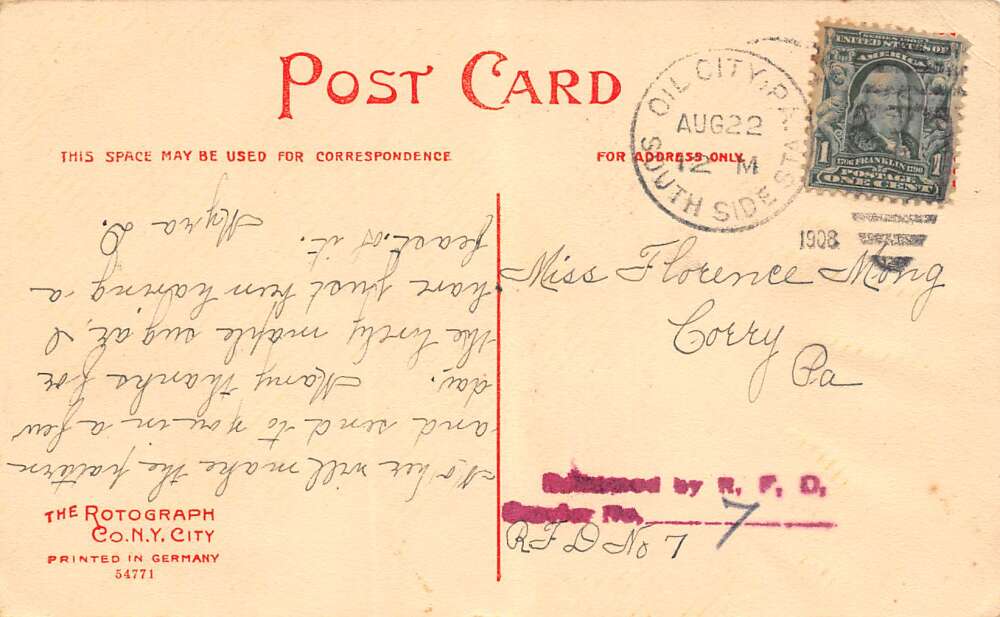 POST CARD
THIS SPACE MAY BE USED FOR CORRESPONDENCE
FOR ADDRESS ONLY
OIL CITY, PA.
AUG 22
12 M
SOUTH SIDE STA.
1908
SERIES 1902
UNITED STATES OF
AMERICA
1 1706 FRANKLIN 1790 1
POSTAGE
ONE CENT
Mother will make the pattern
and send to you in a few
day. Many thanks for
the lovely maple sugar, I
have just been having a
feast of it.
Myra D.
Miss Florence Mong
Corry
Pa
by R. F. D.
No. 7
R F D No 7
THE ROTOGRAPH
CO. N.Y. CITY
PRINTED IN GERMANY
54771